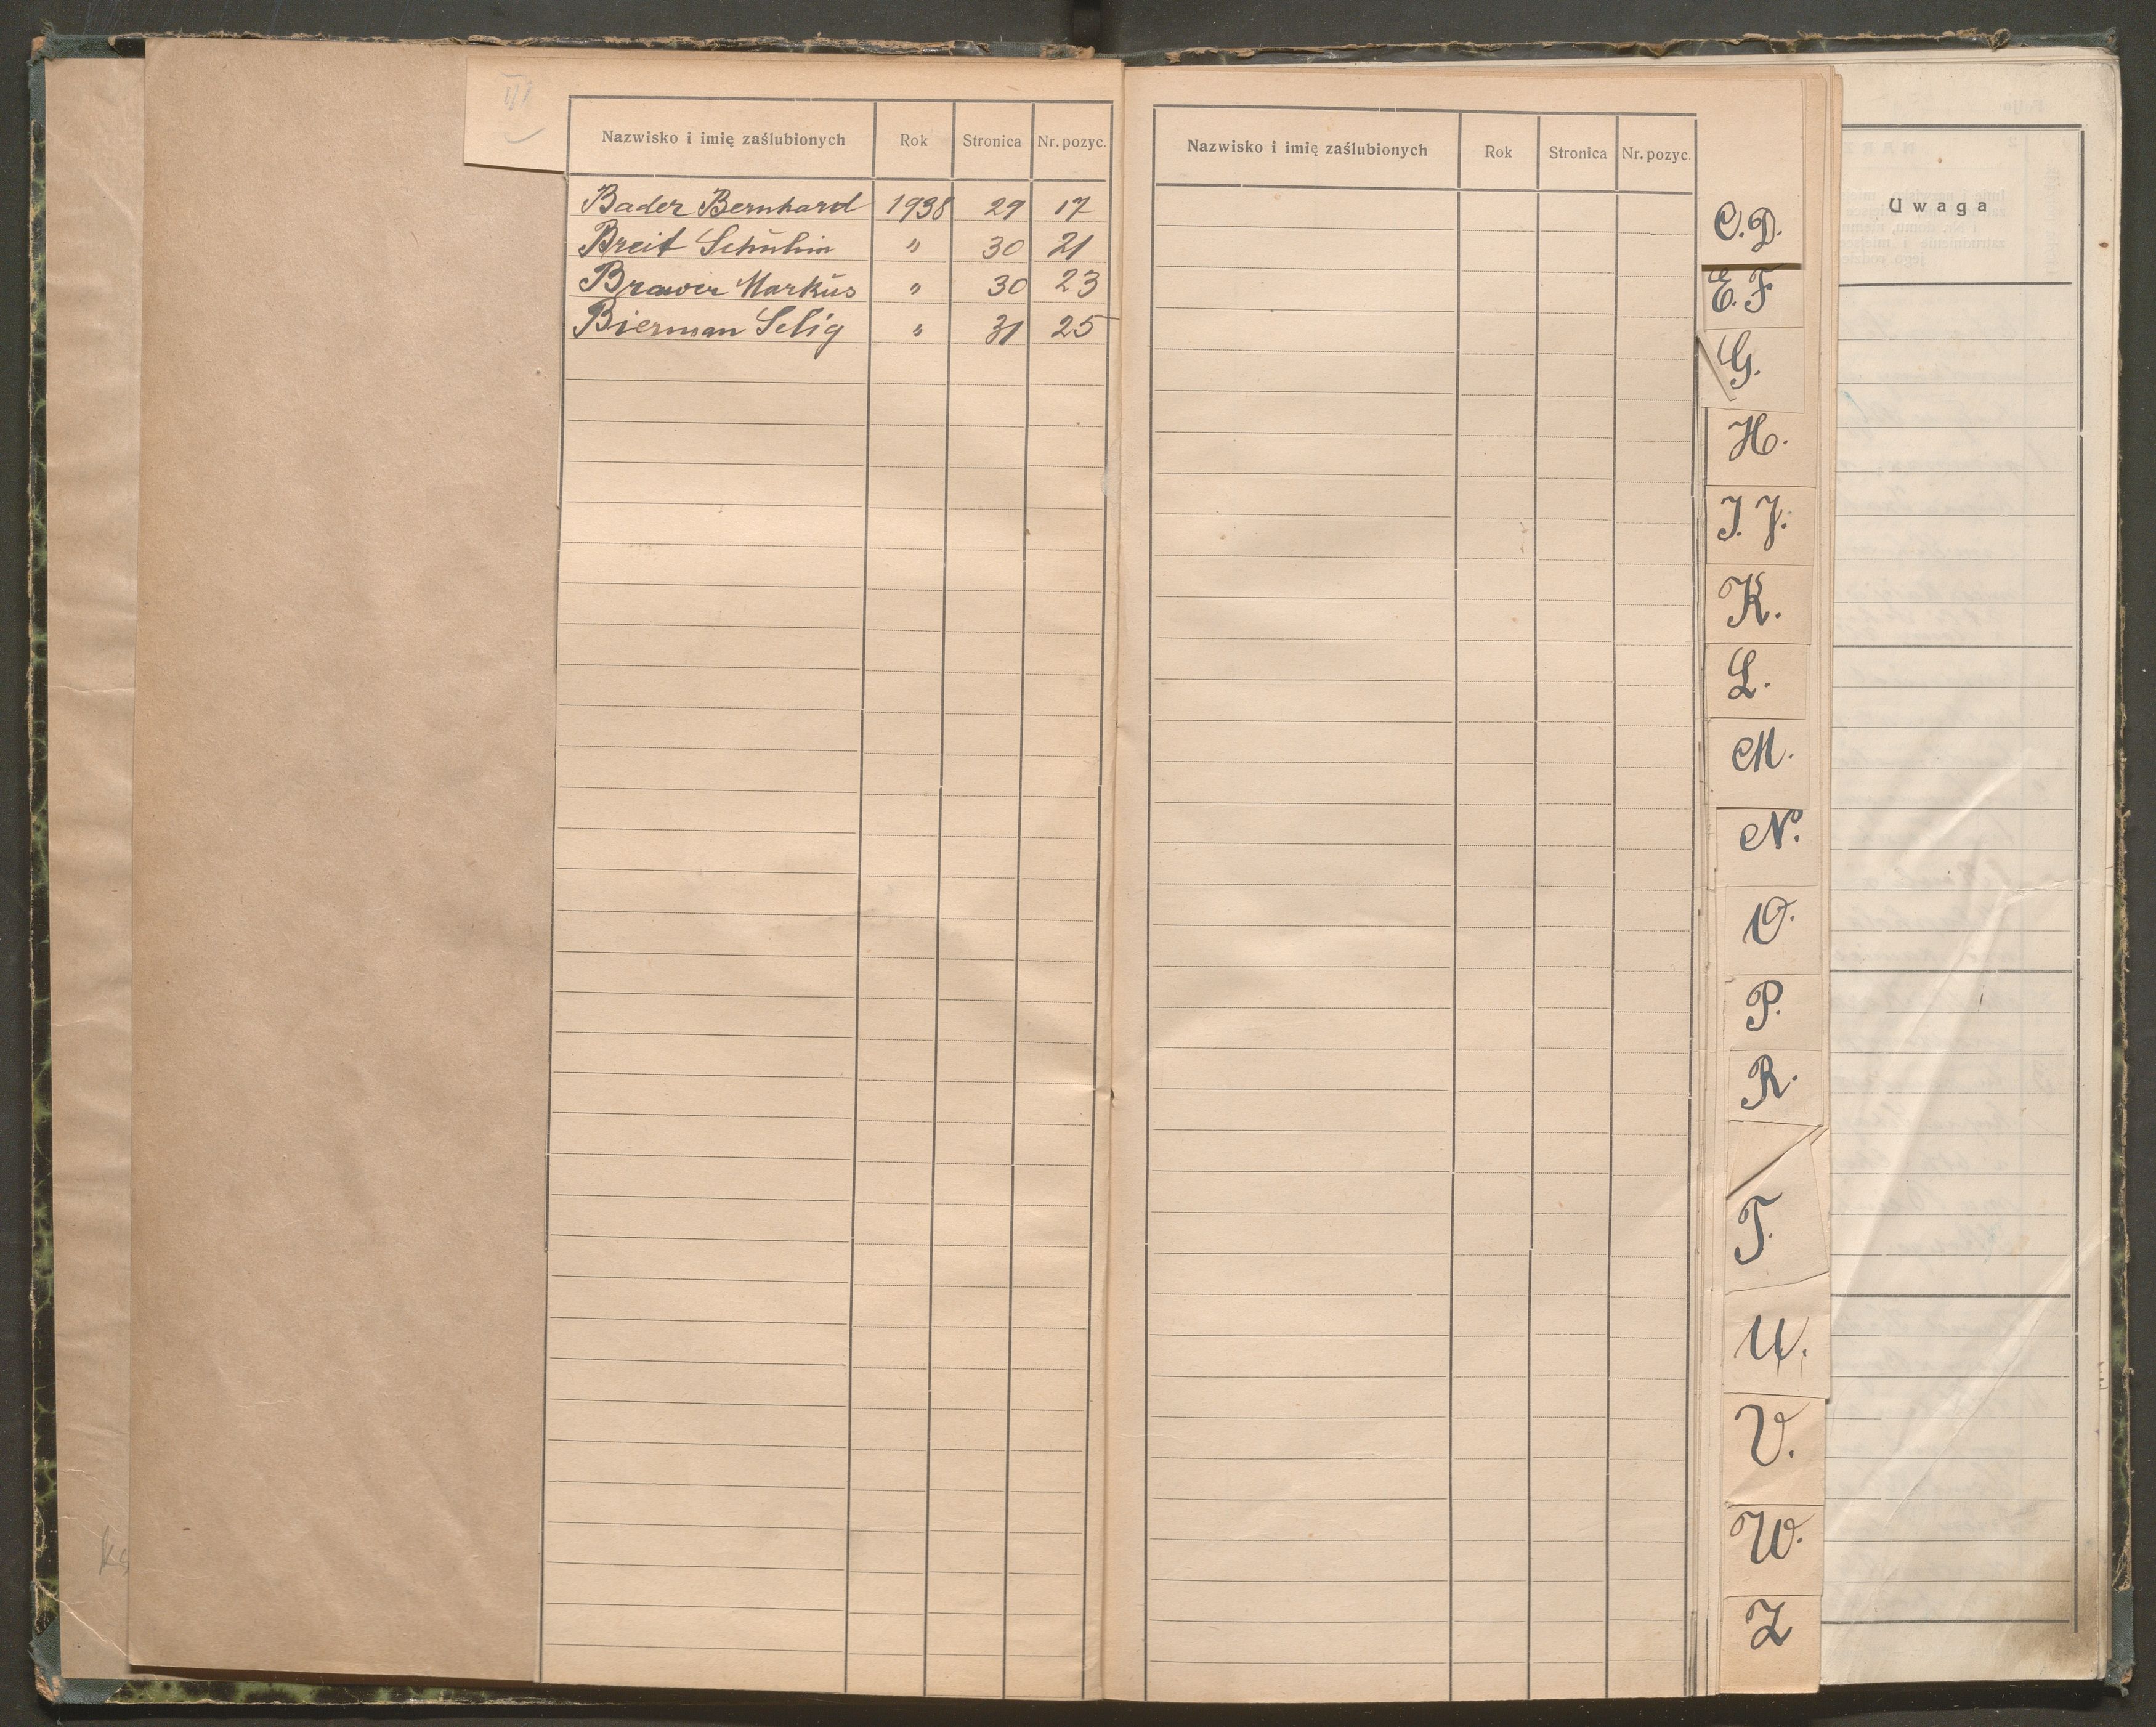 VI
Nazwisko i imię zaślubionych Rok Stronica Nr. pozyc.
Bader Bernhard 1938 29 17
Breit Schulim " 30 21
Brawer Markus " 30 23
Bierman Selig " 31 25
Nazwisko i imię zaślubionych Rok Stronica Nr. pozyc.
C. D.
E. F
G.
H.
I. J.
K.
L.
M.
N.
O.
P.
R.
T.
U.
V.
W.
Z
Uwaga